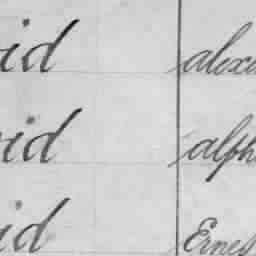 id alexa
id alph
id Ernes